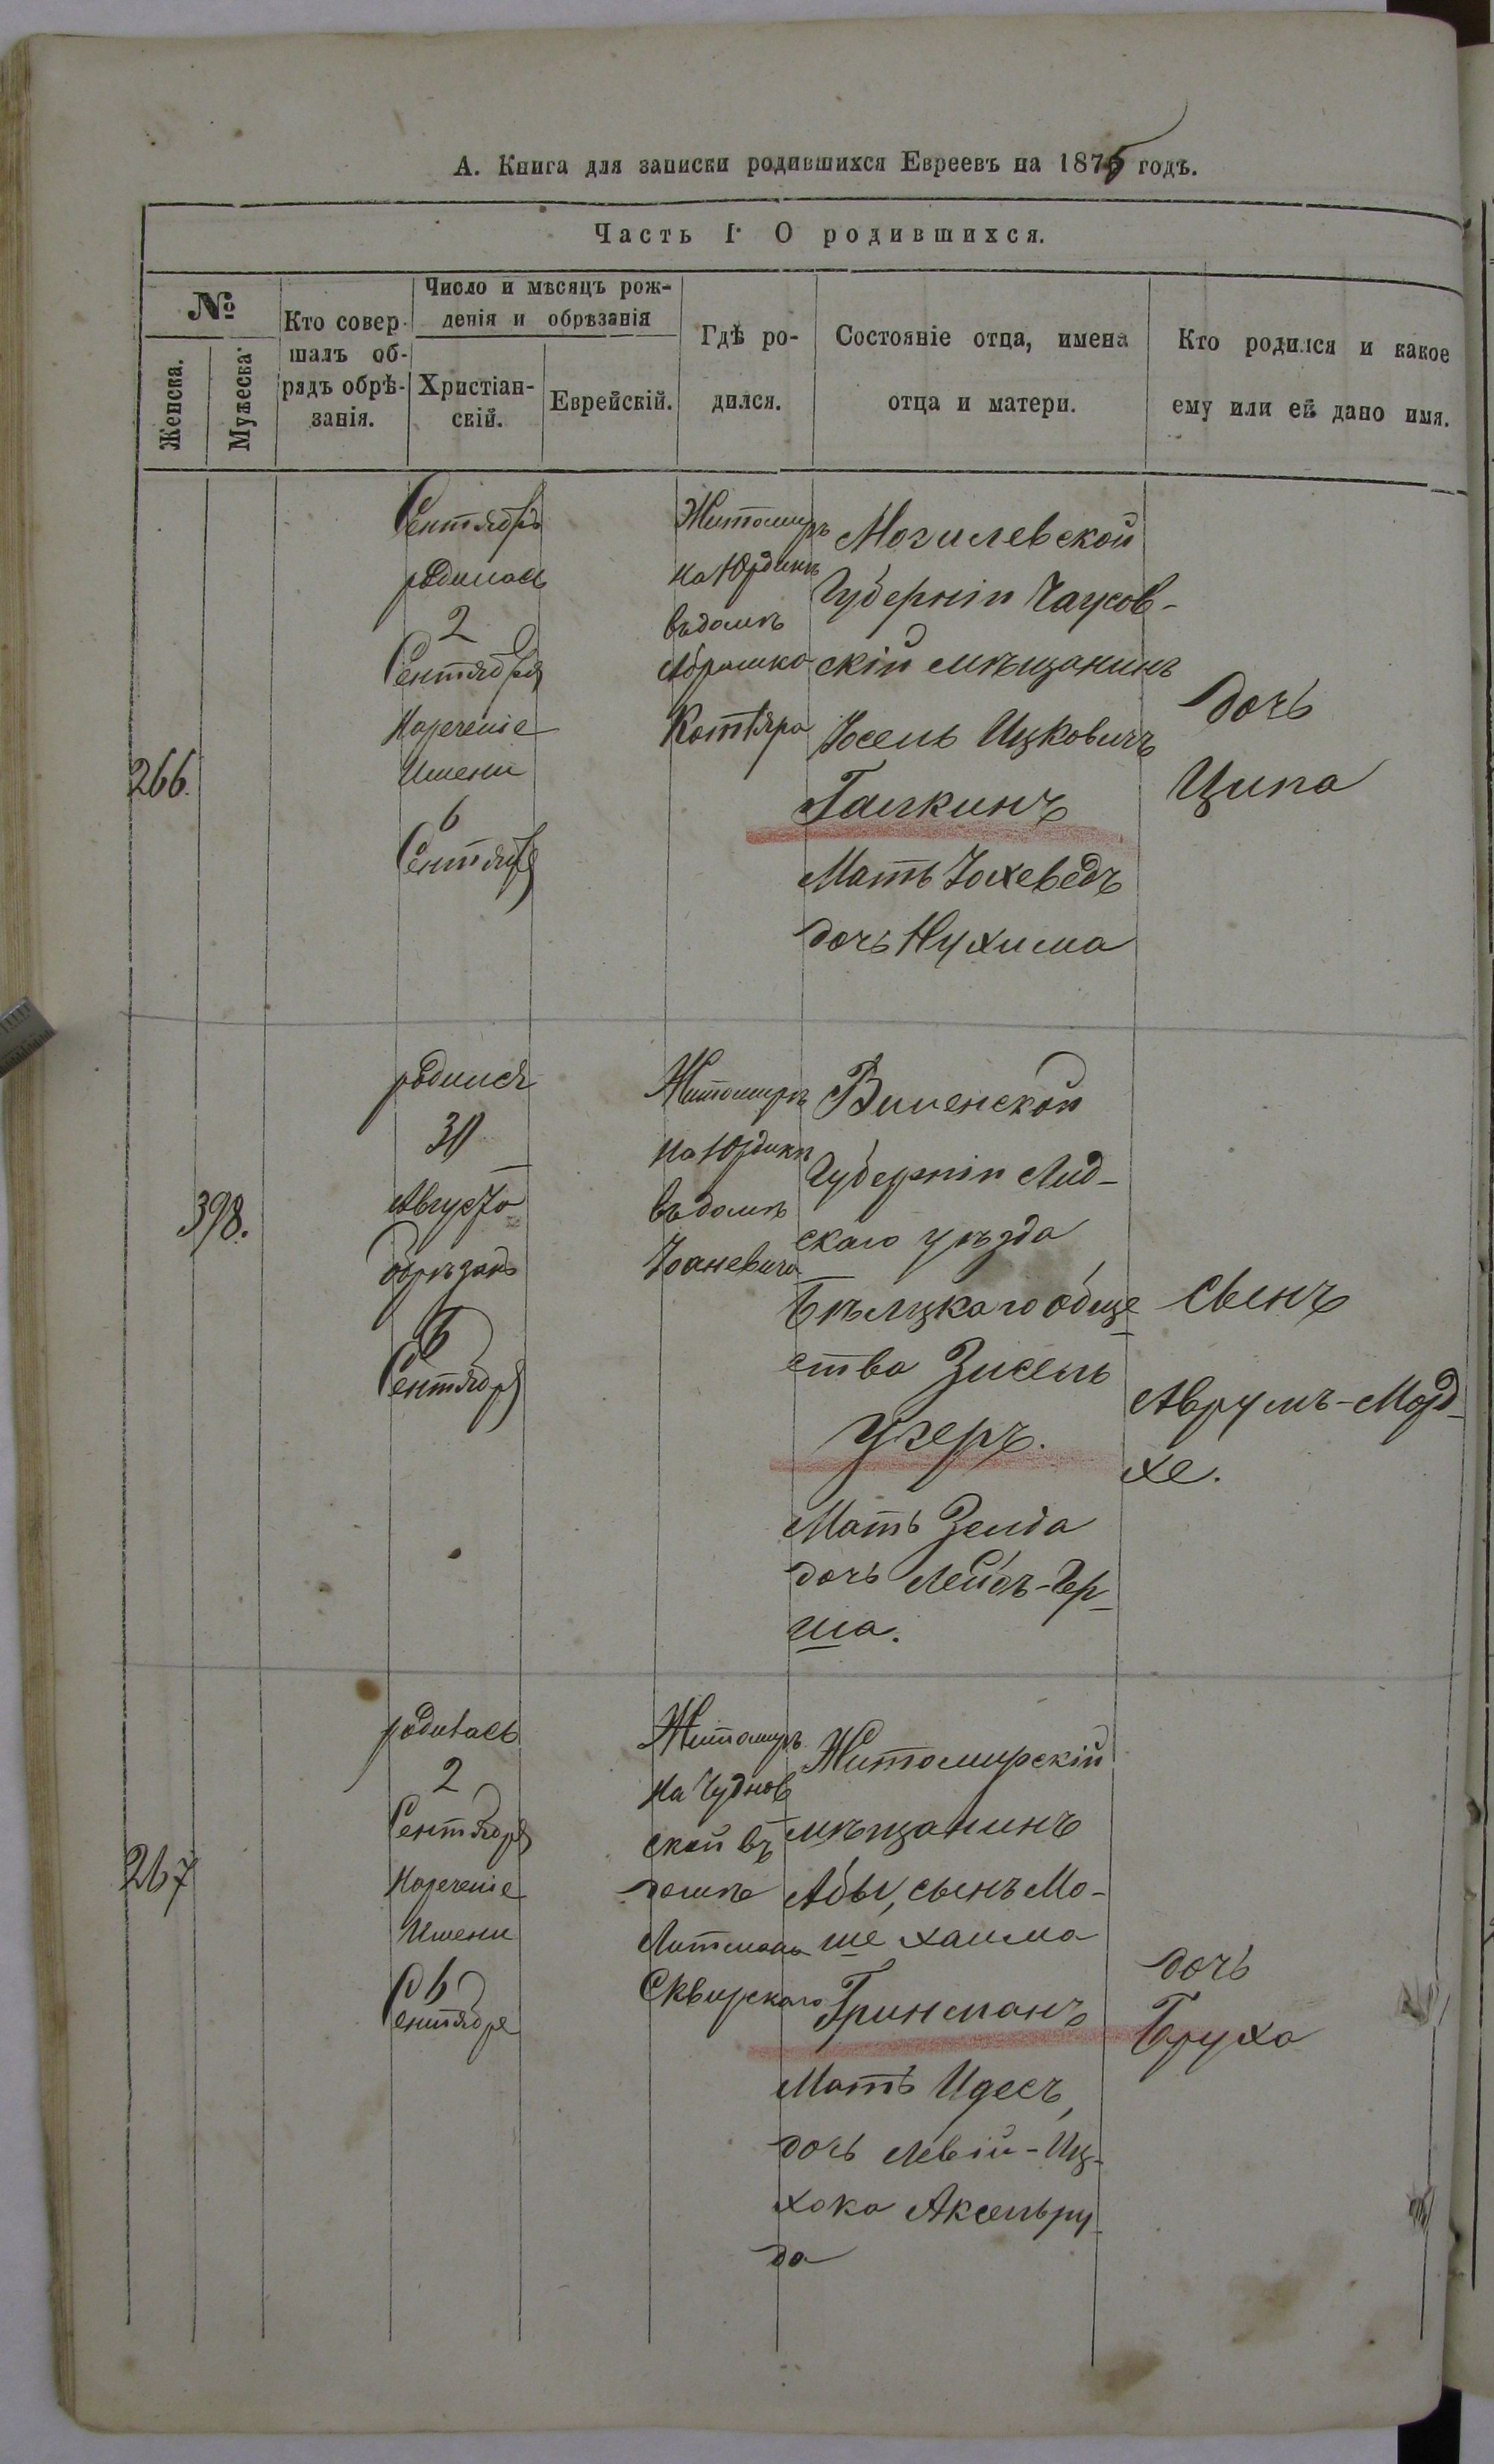 А. Книга для записки родившихся Евреевъ на 1875 годъ.
Часть I. О родившихся.
№
Женска.
Мужеска.
Кто совер-
шалъ об-
рядъ обрѣ-
занія.
Число и мѣсяцъ рож-
денія и обрѣзанія
Христіан-
скій.
Еврейскій.
Гдѣ ро-
дился.
Состояніе отца, имена
отца и матери.
Кто родился и какое
ему или ей дано имя.
266.
Сентябрь
родилась
2
Сентября
Нареченіе
Имени
6
Сентября
Житомиръ
на Юрдикѣ
въ домѣ
Абрашко
Котляра
Могилевской
Губерніи Чаусов-
скій мѣщанинъ
Іосель Ицковичъ
Галкинъ
Мать Іохеведъ
дочь Нухима
дочь
Ципа
398.
родился
30
Августа
Обрѣзанъ
6
Сентября
Житомиръ
на Юрдикѣ
въ домѣ
Виленской
Губерніи Лид-
скаго уѣзда
Бѣлицкаго обще
ства Зисель
Узеръ.
Мать Зелда
дочь Лейбъ-Гер-
ша.
сынъ
Аврумъ-Морд-
хе.
267
родилась
2
Сентября
Нареченіе
Имени
6
Сентября
Житомиръ
на Чуднов
ской въ
домѣ
Литмана
Сквирскаго
Житомирскій
мѣщанинъ
Абы, сынъ Мо-
ше хаима
Гринманъ
Мать Идесъ,
дочь Левій-Иц-
хока Аксельру-
да
дочь
Бруха